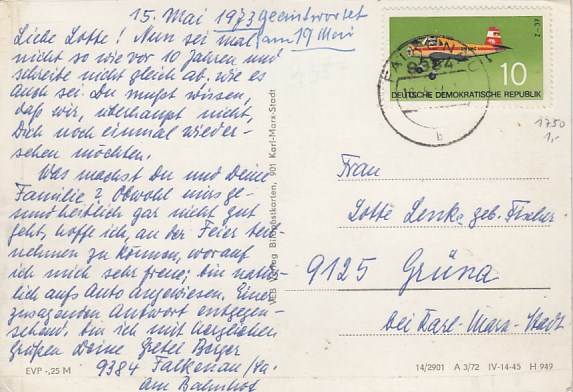 15. Mai 1973 geantwortet
am 19 Mai
Liebe Lotte! Nun sei mal
nicht so wie vor 10 Jahren und
schreibe nicht gleich ab, wie es
auch sei. Du mußt wissen,
daß wir, überhaupt nicht,
Dich noch einmal wieder-
sehen möchten.
Was machst Du und Deine
Familie? Obwohl mirs ge-
sundheitlich gar nicht gut
geht, hoffe ich, an der Feier teil-
nehmen zu können, worauf
ich mich sehr freue; bin natür-
lich aufs Auto angewiesen. Einer
zusagenden Antwort entgegen-
sehend. bin ich mit herzlichen
Grüßen Deine Gretel Berger
9384 Falkenau/Sa.
am Bahnhof
EVP -,25 M
VEB Verlag Bild und Karten, 901 Karl-Marx-Stadt
Z-37
9384
10
DEUTSCHE DEMOKRATISCHE REPUBLIK
b
1750
1,-
Frau
Lotte Lenke geb. Fischer
9125 Grüna
bei Karl-Marx-Stadt
14/2901 A 3/72 IV-14-45 H 949